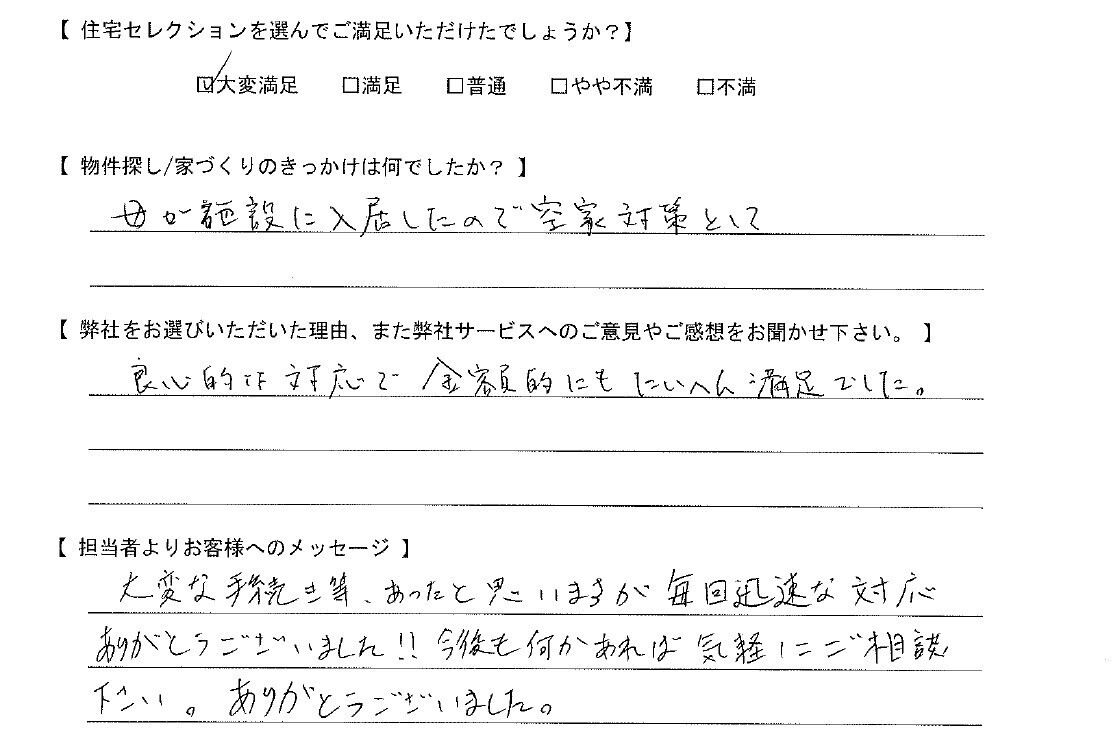 【 住宅セレクションを選んでご満足いただけたでしょうか？】
☑大変満足 □満足 □普通 □やや不満 □不満
【 物件探し/家づくりのきっかけは何でしたか？ 】
母が施設に入居したので空家対策として
【 弊社をお選びいただいた理由、また弊社サービスへのご意見やご感想をお聞かせ下さい。 】
良心的な対応で金額的にもたいへん満足でした。
【 担当者よりお客様へのメッセージ 】
大変な手続き等、あったと思いますが毎回迅速な対応
ありがとうございました!!今後も何かあれば気軽にご相談
下さい。ありがとうございました。